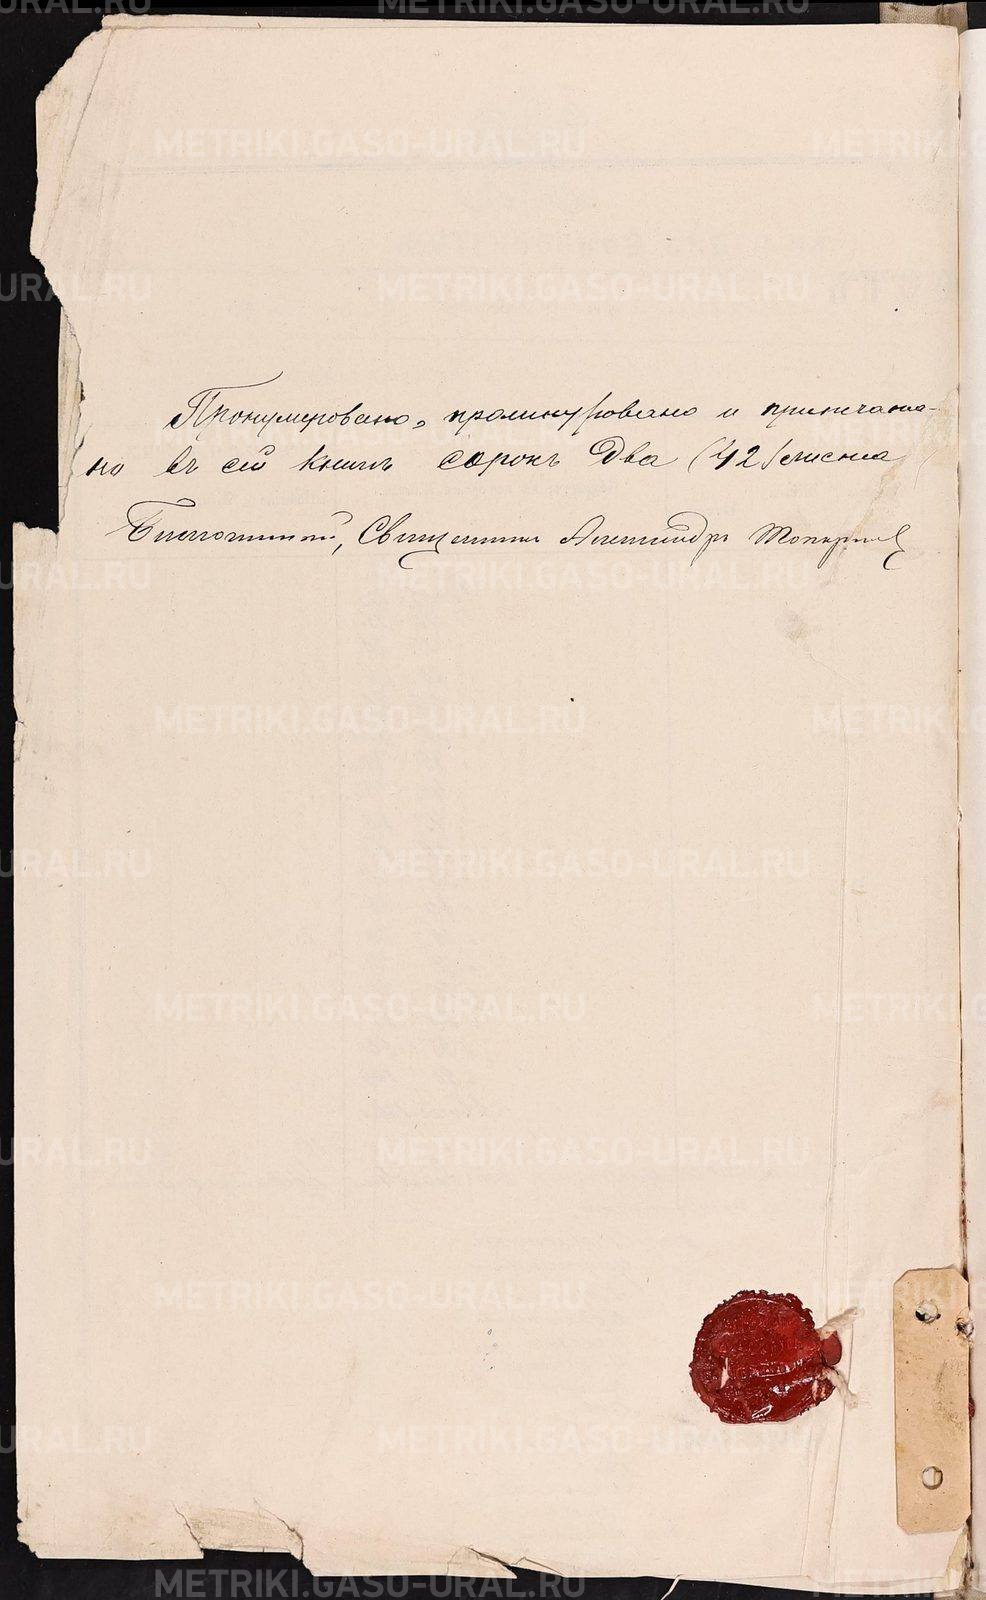 Пронумеровано, прошнуровано и припечата-
но въ сей книгѣ сорокъ два (42) листа
Благочинный, Священникъ Александръ
METRIKI.GASO-URAL.RU